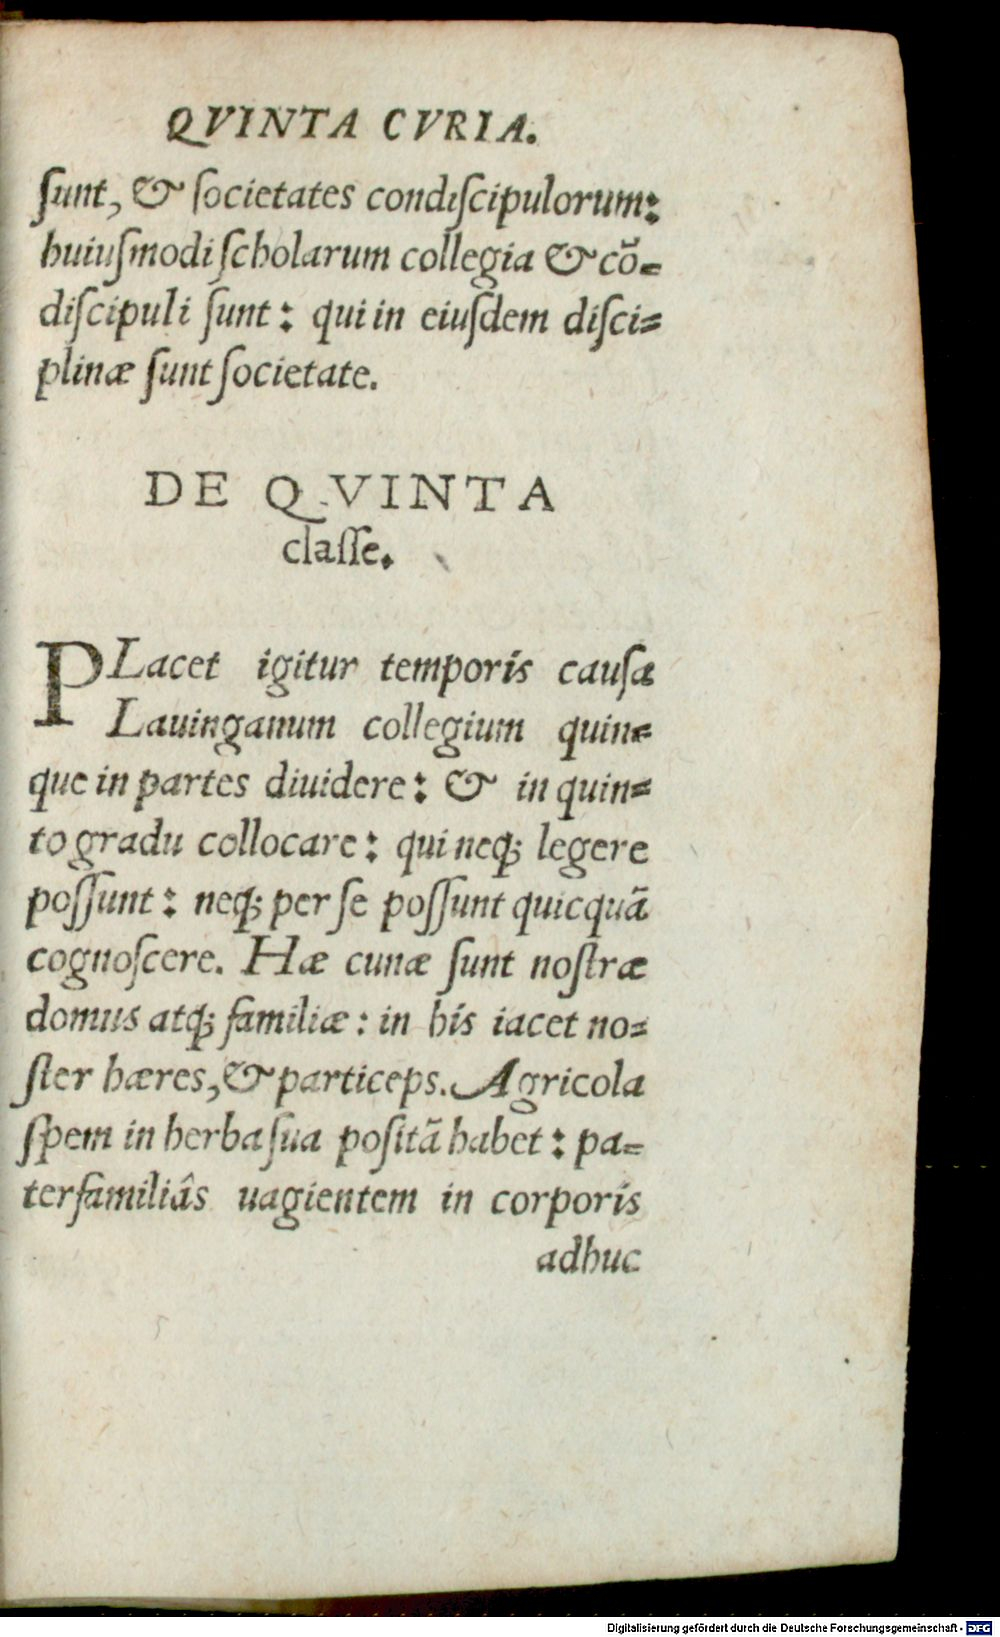 QVINTA CVRIA.
ſunt, & ſocietates condiſcipulorum:
huiuſmodi ſcholarum collegia & cõ-
diſcipuli ſunt: qui in eiuſdem diſci-
plinæ ſunt ſocietate.
DE QVINTA
claſſe.
PLacet igitur temporis cauſa
Lauinganum collegium quin-
que in partes diuidere: & in quin-
to gradu collocare: qui neq; legere
poſſunt: neq; per ſe poſſunt quicquã
cognoſcere. Hæ cunæ ſunt noſtræ
domus atq; familiæ: in his iacet no-
ſter hæres, & particeps. Agricola
ſpem in herba ſua poſitã habet: pa-
terfamiliâs uagientem in corporis
adhuc
Digitalisierung gefördert durch die Deutsche Forschungsgemeinschaft - DFG